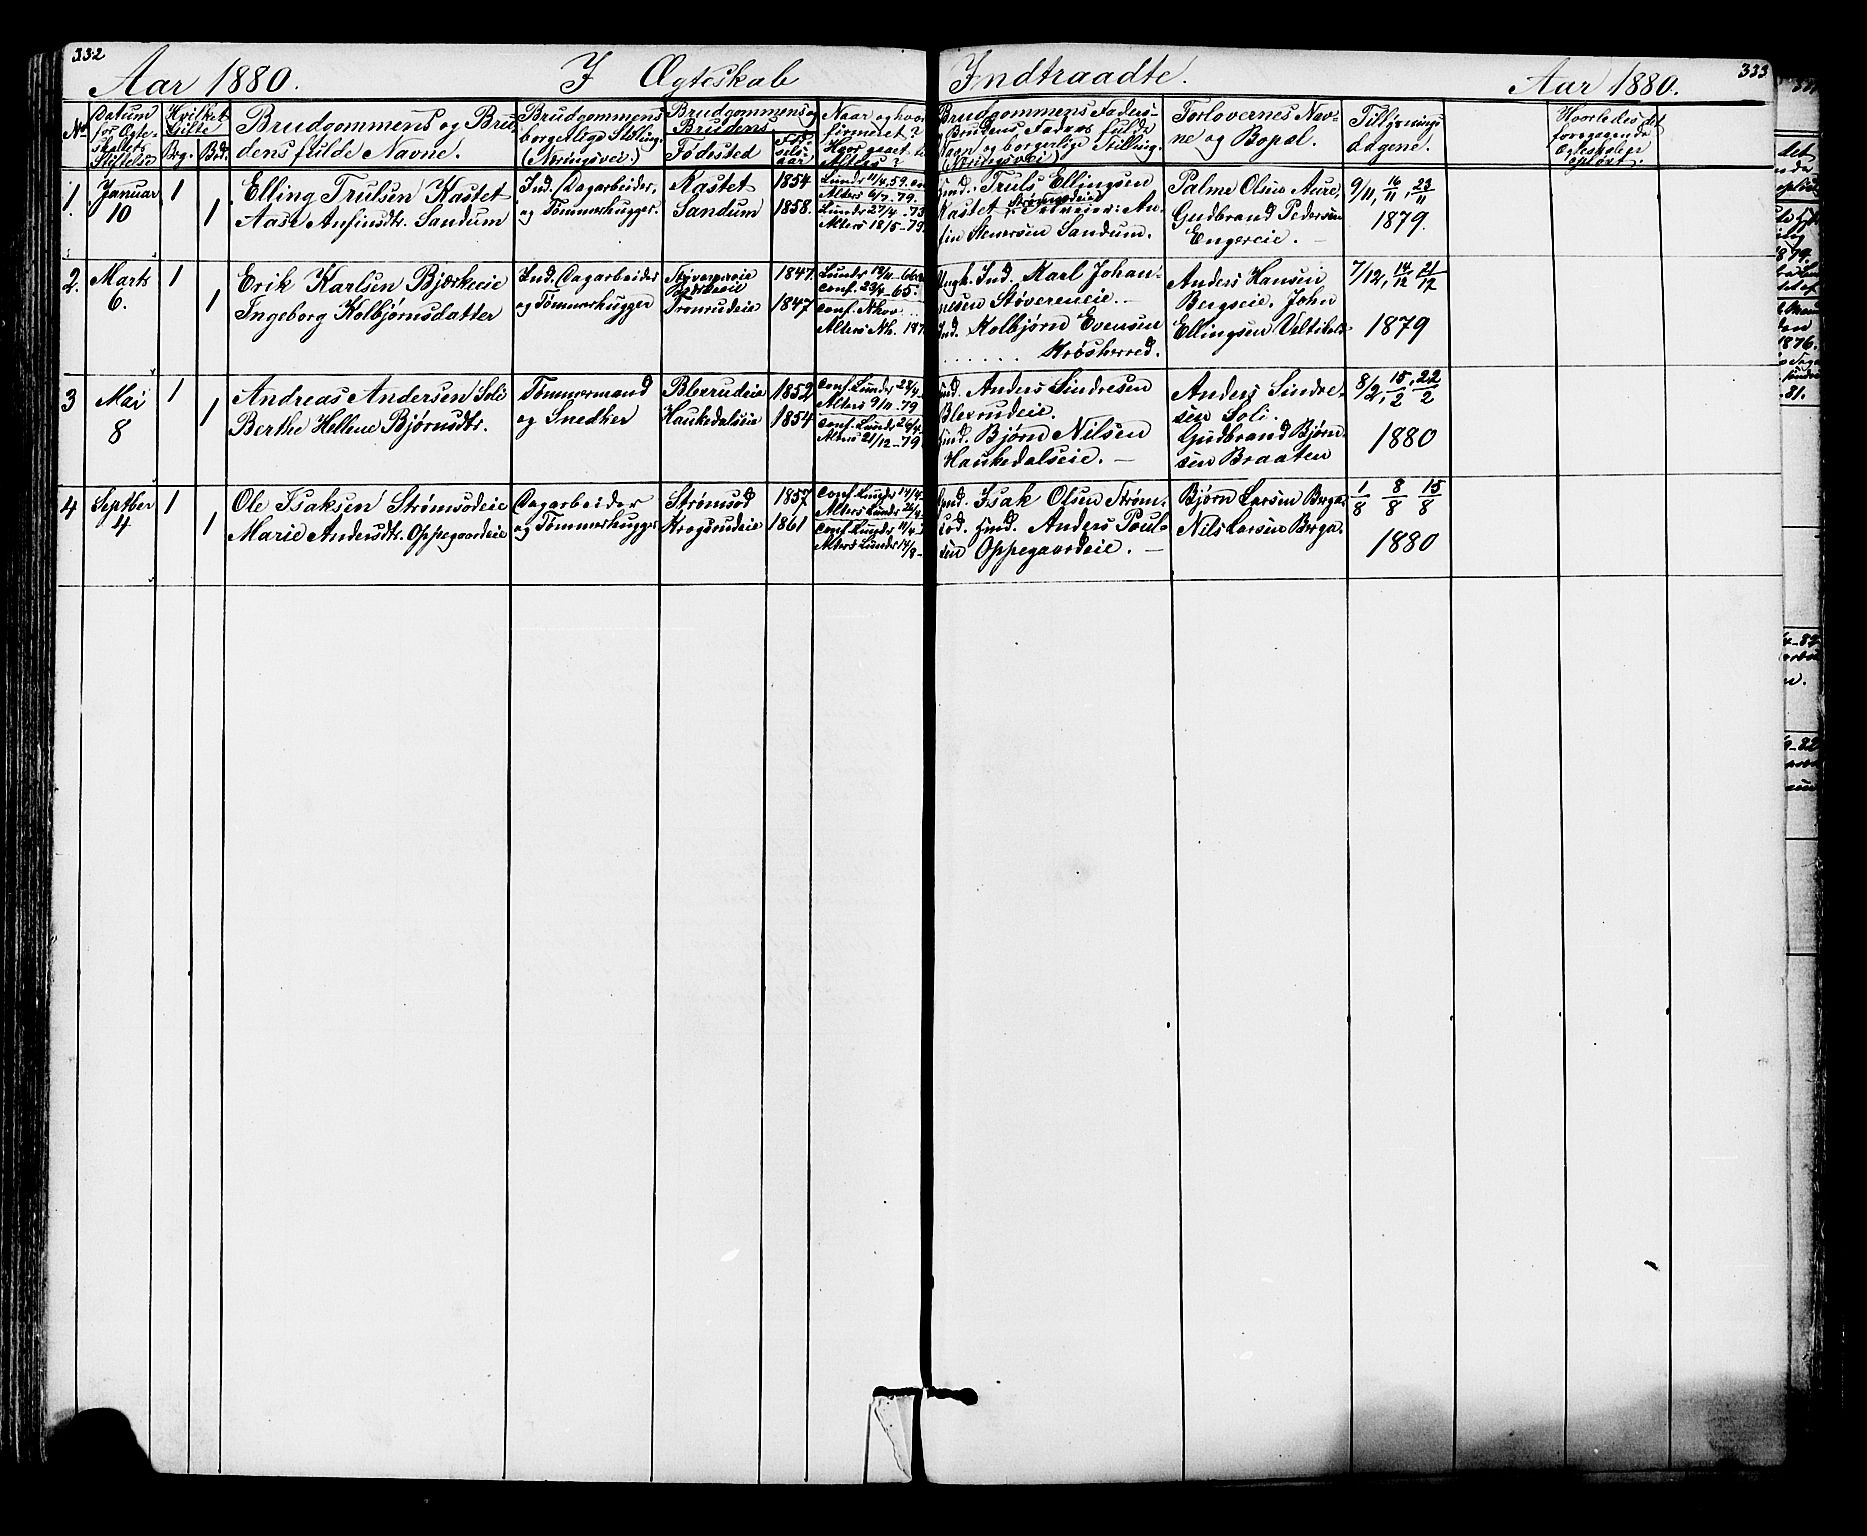 332
Aar 1880. I Ægteskab Indtraadte. Aar 1880. 333
No
Datum for Ægteskabets Stiftelse
Hvilket Gifte
Brg. Brd.
Brudgommens og Brudens fulde Navne.
Brudgommens borgerlige Stilling. (Næringsvei.)
Brudgommens og Brudens
Fødested
Fødselsaar
Naar og hvor
Hvor gaaet til
Alters?
Brudgommens Faders og Brudens Faders fulde
Navn og borgerlige Stilling.
(Næringsvei)
Forlovernes Navne og Bopæl.
Tillysningsdagene.
Hvorledes det foregaaende Ægteskab er opløst.
1. Januar 10
1
1
Elling Trulsen Kastet
Aase Anfinsdtr. Sandum
Ind. Dagarbeider,
og Tømmerhugger.
Kastet 1854
Sandum 1858.
Lunder 11/4 59.
Alters 6/7 - 79.
Lunder 27/4 - 73
Alters 18/5 - 79.
Truls Ellingsen
Kastet
Strømsodeie
Anfin Steversen Sandum.
Palme Olsen Aure,
Gudbrand Pedersen
Engereie.
9/11, 16/11, 23/11
1879.
2. Marts 6.
1
1
Erik Karlsen Bjørkeeie
Ingeborg Kolbjørnsdatter
Ind. Dagarbeider
og Tømmerhugger
Støvereneie
Bjørkeeie
Tronrudeie
1847.
1847
Conf. 23/4 - 65.
Conf. Nhov.
Alters Nh.
Ungk. Ind. Karl Johannesen Støvereneie.
Ind. Kolbjørn Evensen
Krøsherred.
Anders Hansen
Bergseie. John
Ellingsen Veltibak
7/12, 14/12 21/12
1879
3 Mai 8
1
1
Andreas Andersen Soli
Berthe Hellene Bjørnsdtr.
Tømmermand
og Snedker
Blexrudeie 1852
Haukedalseie 1854
Conf. Lunder 28/4
Alters 9/11 - 79
Conf. Lunder 26/4
Alters 21/12 - 79
Ind. Anders Sindresen
Blexrudeie.
Ind. Bjørn Nilsen
Haukedalseie.
Anders Sindresen Soli.
Gudbrand Bjørnsen Braaten
8/2, 15/2, 22/2
1880
4 Septber 4
1
1
Ole Isaksen Strømsodeie
Marie Andersdtr. Oppegaardeie
Dagarbeider
og Tømmerhugger
Strømsod 1857
Krogsrudeie 1861
Conf. Lunder 14/4
Alters Lunder
Conf. Lunder 11/4
Alters Lunder 14/8
Isak Olsen Strømsod. Ind. Anders Poulsen Oppegaardeie.
Bjørn Larsen Berga.
Nils Larsen Berga.
1/8 8/8 15/8
1880